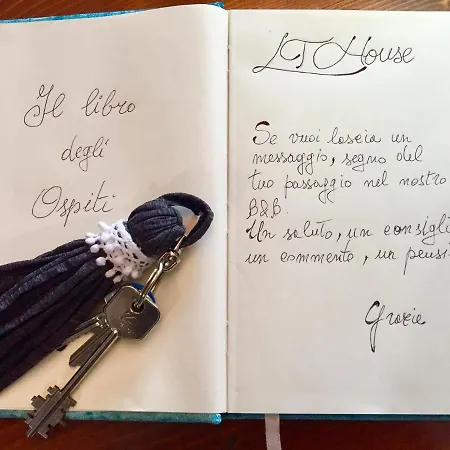 Il libro
degli
Ospiti
LT House
Se vuoi lascia un
messaggio, segno del
tuo passaggio nel nostro
B&B.
Un saluto, un consigli
un commento, un pensi
Grazie